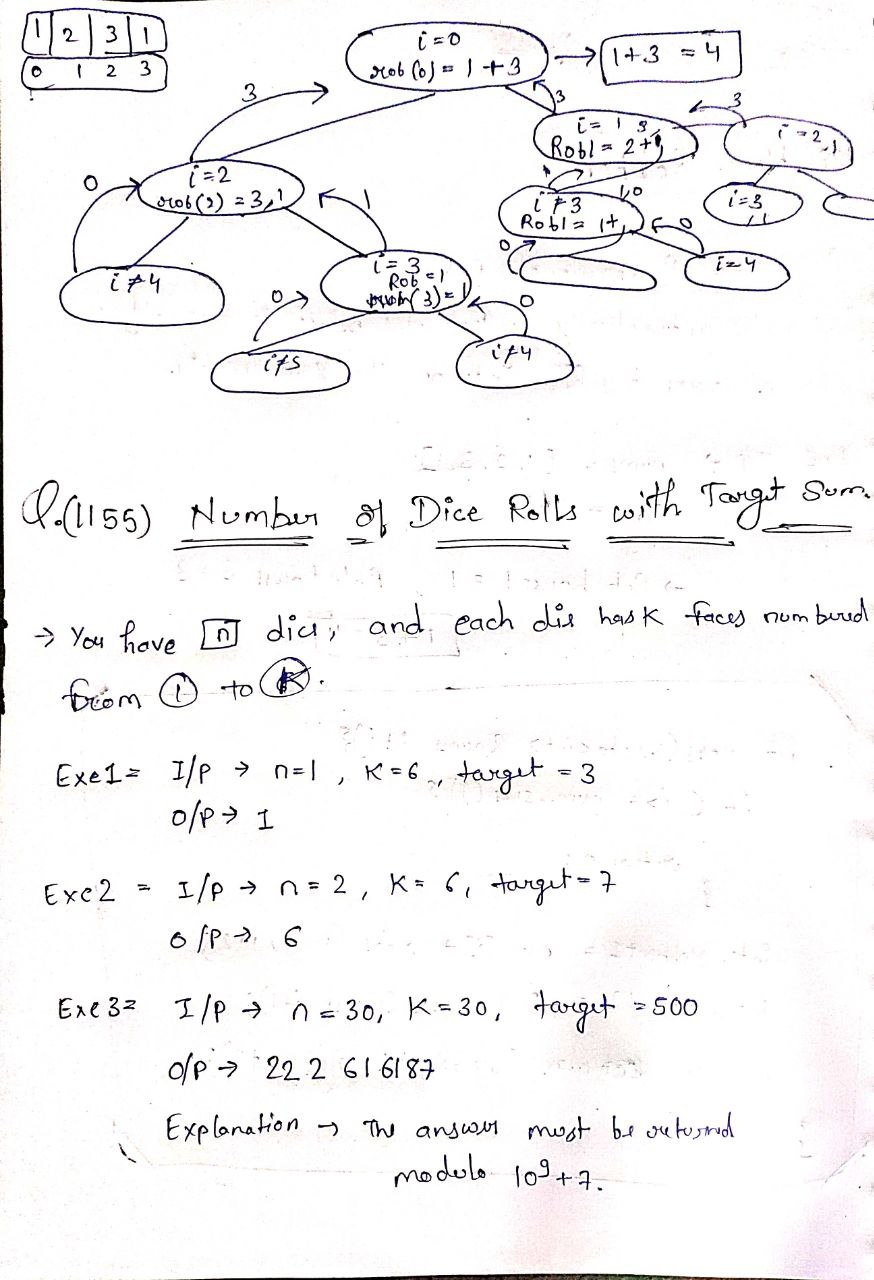 1 2 3 1
0 1 2 3
i=0
rob(0) = 1+3
1+3 = 4
3
3
3
i=1
Rob1 = 2+
i=2
i=2
rob(2) = 3,1
0
1
i≠3
Rob1 = 1+
1,0
i=3
i≠4
i=3
Rob=1
(3)=1
0
0
0
0
i=4
i≠5
i≠4
Q.(1155) Number of Dice Rolls with Target Sum.
→ You have n dics, and each die has K faces numbered
from 1 to K.
Exe1= I/P → n=1, K=6, target = 3
O/P → 1
Exe2 = I/P → n=2, K=6, target=7
O/P → 6
Exe3= I/P → n=30, K=30, target =500
O/P → 222616187
Explanation → The answer must be returned
modulo 10⁹+7.